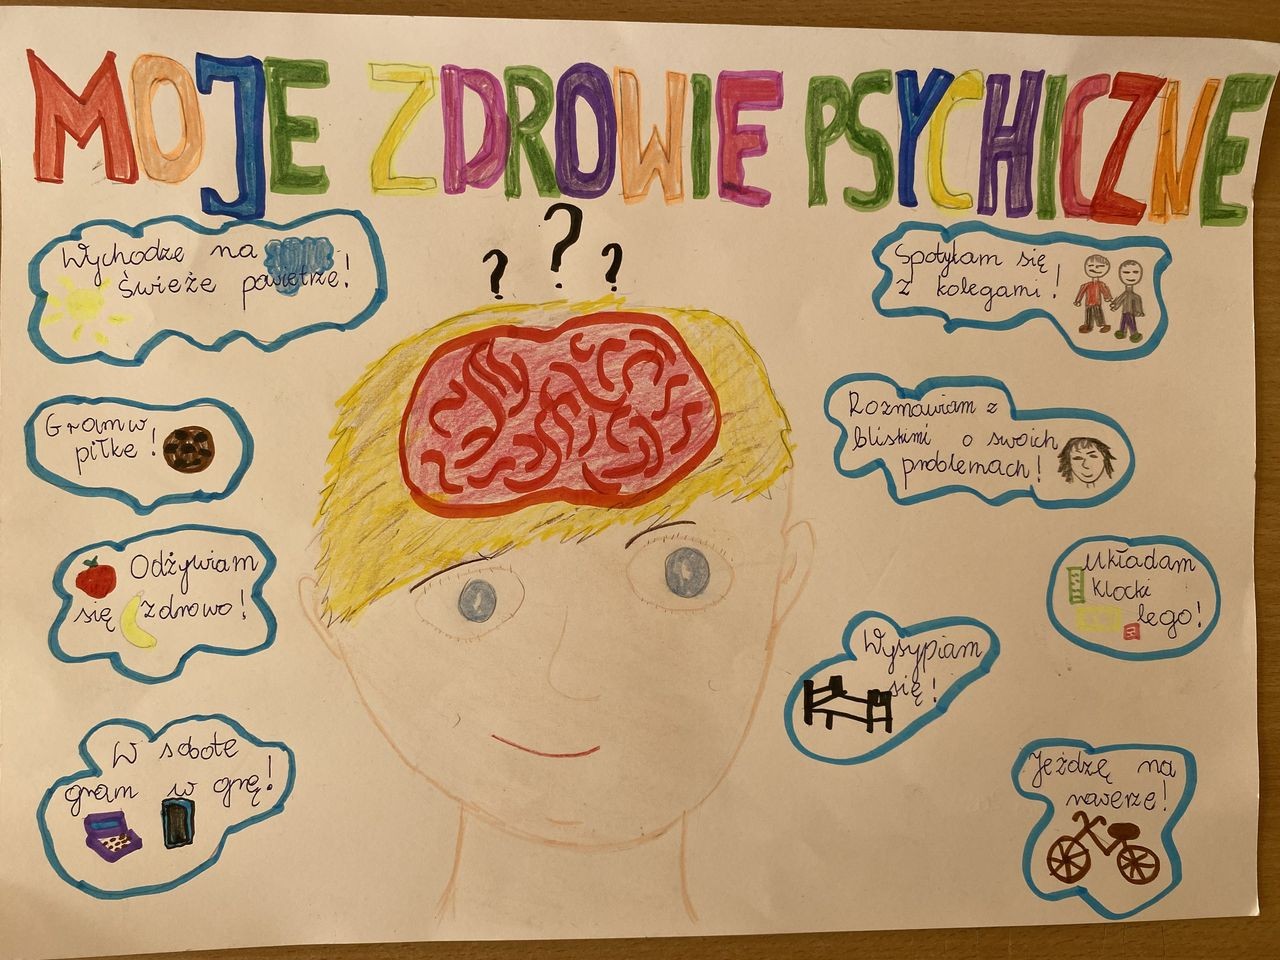 MOJE ZDROWIE PSYCHICZNE
? ? ?
Wychodzę na
świeże powietrze!
Gram w
piłkę!
Odżywiam
się zdrowo!
W sobotę
gram w grę!
Spotykam się
z kolegami!
Rozmawiam z
bliskimi o swoich
problemach!
Układam
klocki
lego!
Wysypiam
się!
Jeżdżę na
rowerze!